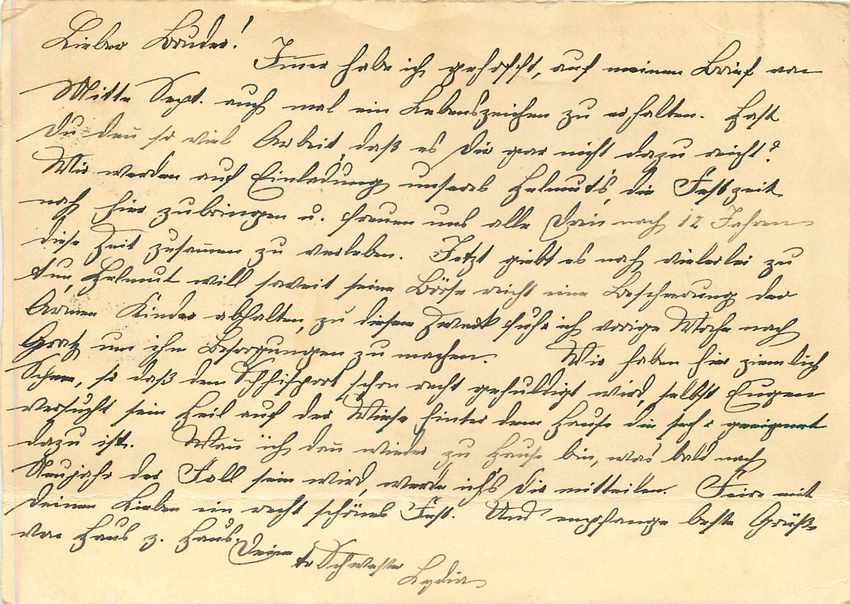 Lieber Bruder!
Immer habe ich gehofft, auf meinen Brief von
Mitte Sept. auch mal ein Lebenszeichen zu erhalten. Hast
Du denn so viel Arbeit daß es Dir gar nicht dazu reicht?
Wir werden auf Einladung unseres Helmut's, die Festzeit
noch hier zubringen u. freuen uns alle Drei nach 12 Jahren
diese Zeit zusammen zu verleben. Jetzt giebt es noch vielerlei zu
tun, Helmut will soweit seine Börse reicht eine Bescherung der
Armen Kinder abhalten, zu diesem Zweck fuhr ich vorige Woche nach
Gratz um ihm Besorgungen zu machen. Wir haben hier ziemlich
Schnee, so daß dem Schisport schon recht gehuldigt wird, selbst Eugen
versucht sein Heil auf der Wiese hinter dem Hause die sehr geeignet
dazu ist. Wenn ich dann wieder zu Hause bin, was bald nach
Neujahr der Fall sein wird, werde ich's Dir mitteilen. Feire mit
Deinen Lieben ein recht schönes Fest. Und empfange beste Grüße
von Haus z. Haus.
Deine Schwester
Lydia